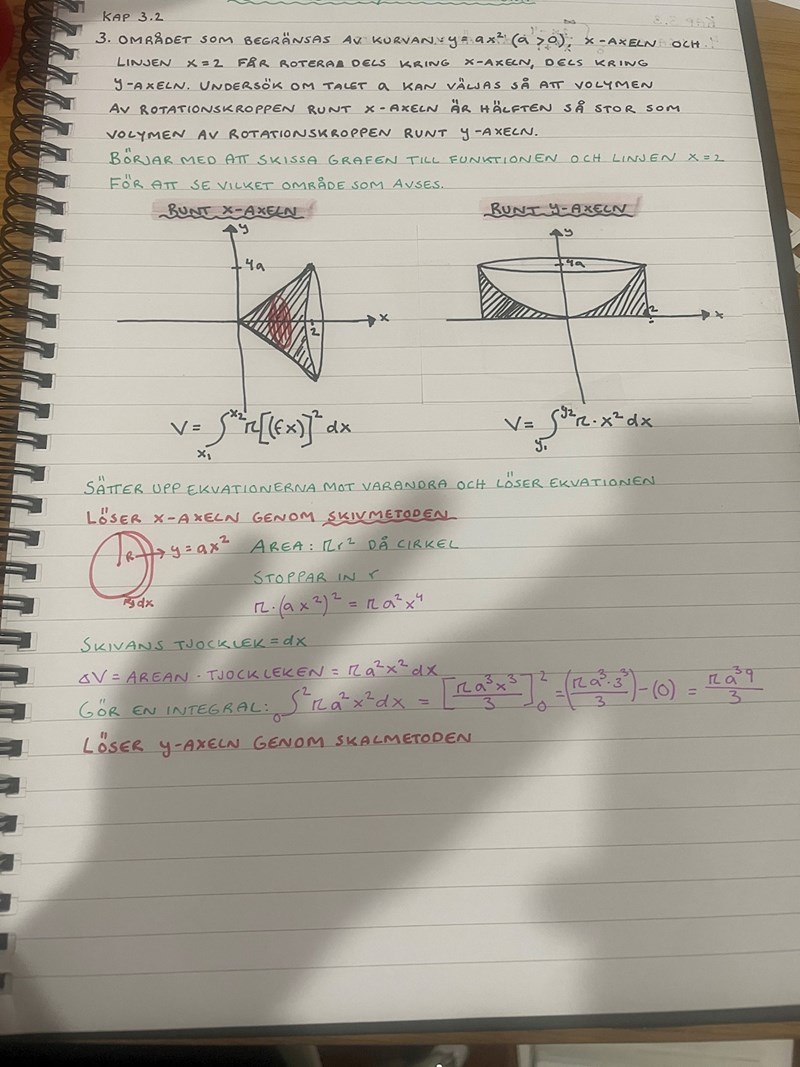 KAP 3.2
3. OMRÅDET SOM BEGRÄNSAS AV KURVAN y=ax² (a>0), X-AXELN OCH
LINJEN X=2 FÅR ROTERA DELS KRING X-AXELN, DELS KRING
y-AXELN. UNDERSÖK OM TALET a KAN VÄLJAS SÅ ATT VOLYMEN
AV ROTATIONSKROPPEN RUNT X-AXELN ÄR HÄLFTEN SÅ STOR SOM
VOLYMEN AV ROTATIONSKROPPEN RUNT y-AXELN.
BÖRJAR MED ATT SKISSA GRAFEN TILL FUNKTIONEN OCH LINJEN X=2
FÖR ATT SE VILKET OMRÅDE SOM AVSES.
RUNT X-AXELN
RUNT y-AXELN
y
4a
x
2
y
4a
x
2
V = ∫x₁^x₂ π[(fx)]² dx
V = ∫y₁^y₂ π·x² dx
SÄTTER UPP EKVATIONERNA MOT VARANDRA OCH LÖSER EKVATIONEN
LÖSER X-AXELN GENOM SKIVMETODEN
R → y=ax² AREA: πr² DÅ CIRKEL
dx
STOPPAR IN r
π·(ax²)² = πa²x⁴
SKIVANS TJOCKLEK=dx
ΔV = AREAN · TJOCKLEKEN = πa²x²dx
GÖR EN INTEGRAL: ∫₀² πa²x²dx = [πa³x³/3]₀² = (πa³·3³/3) - (0) = πa³9/3
LÖSER y-AXELN GENOM SKALMETODEN